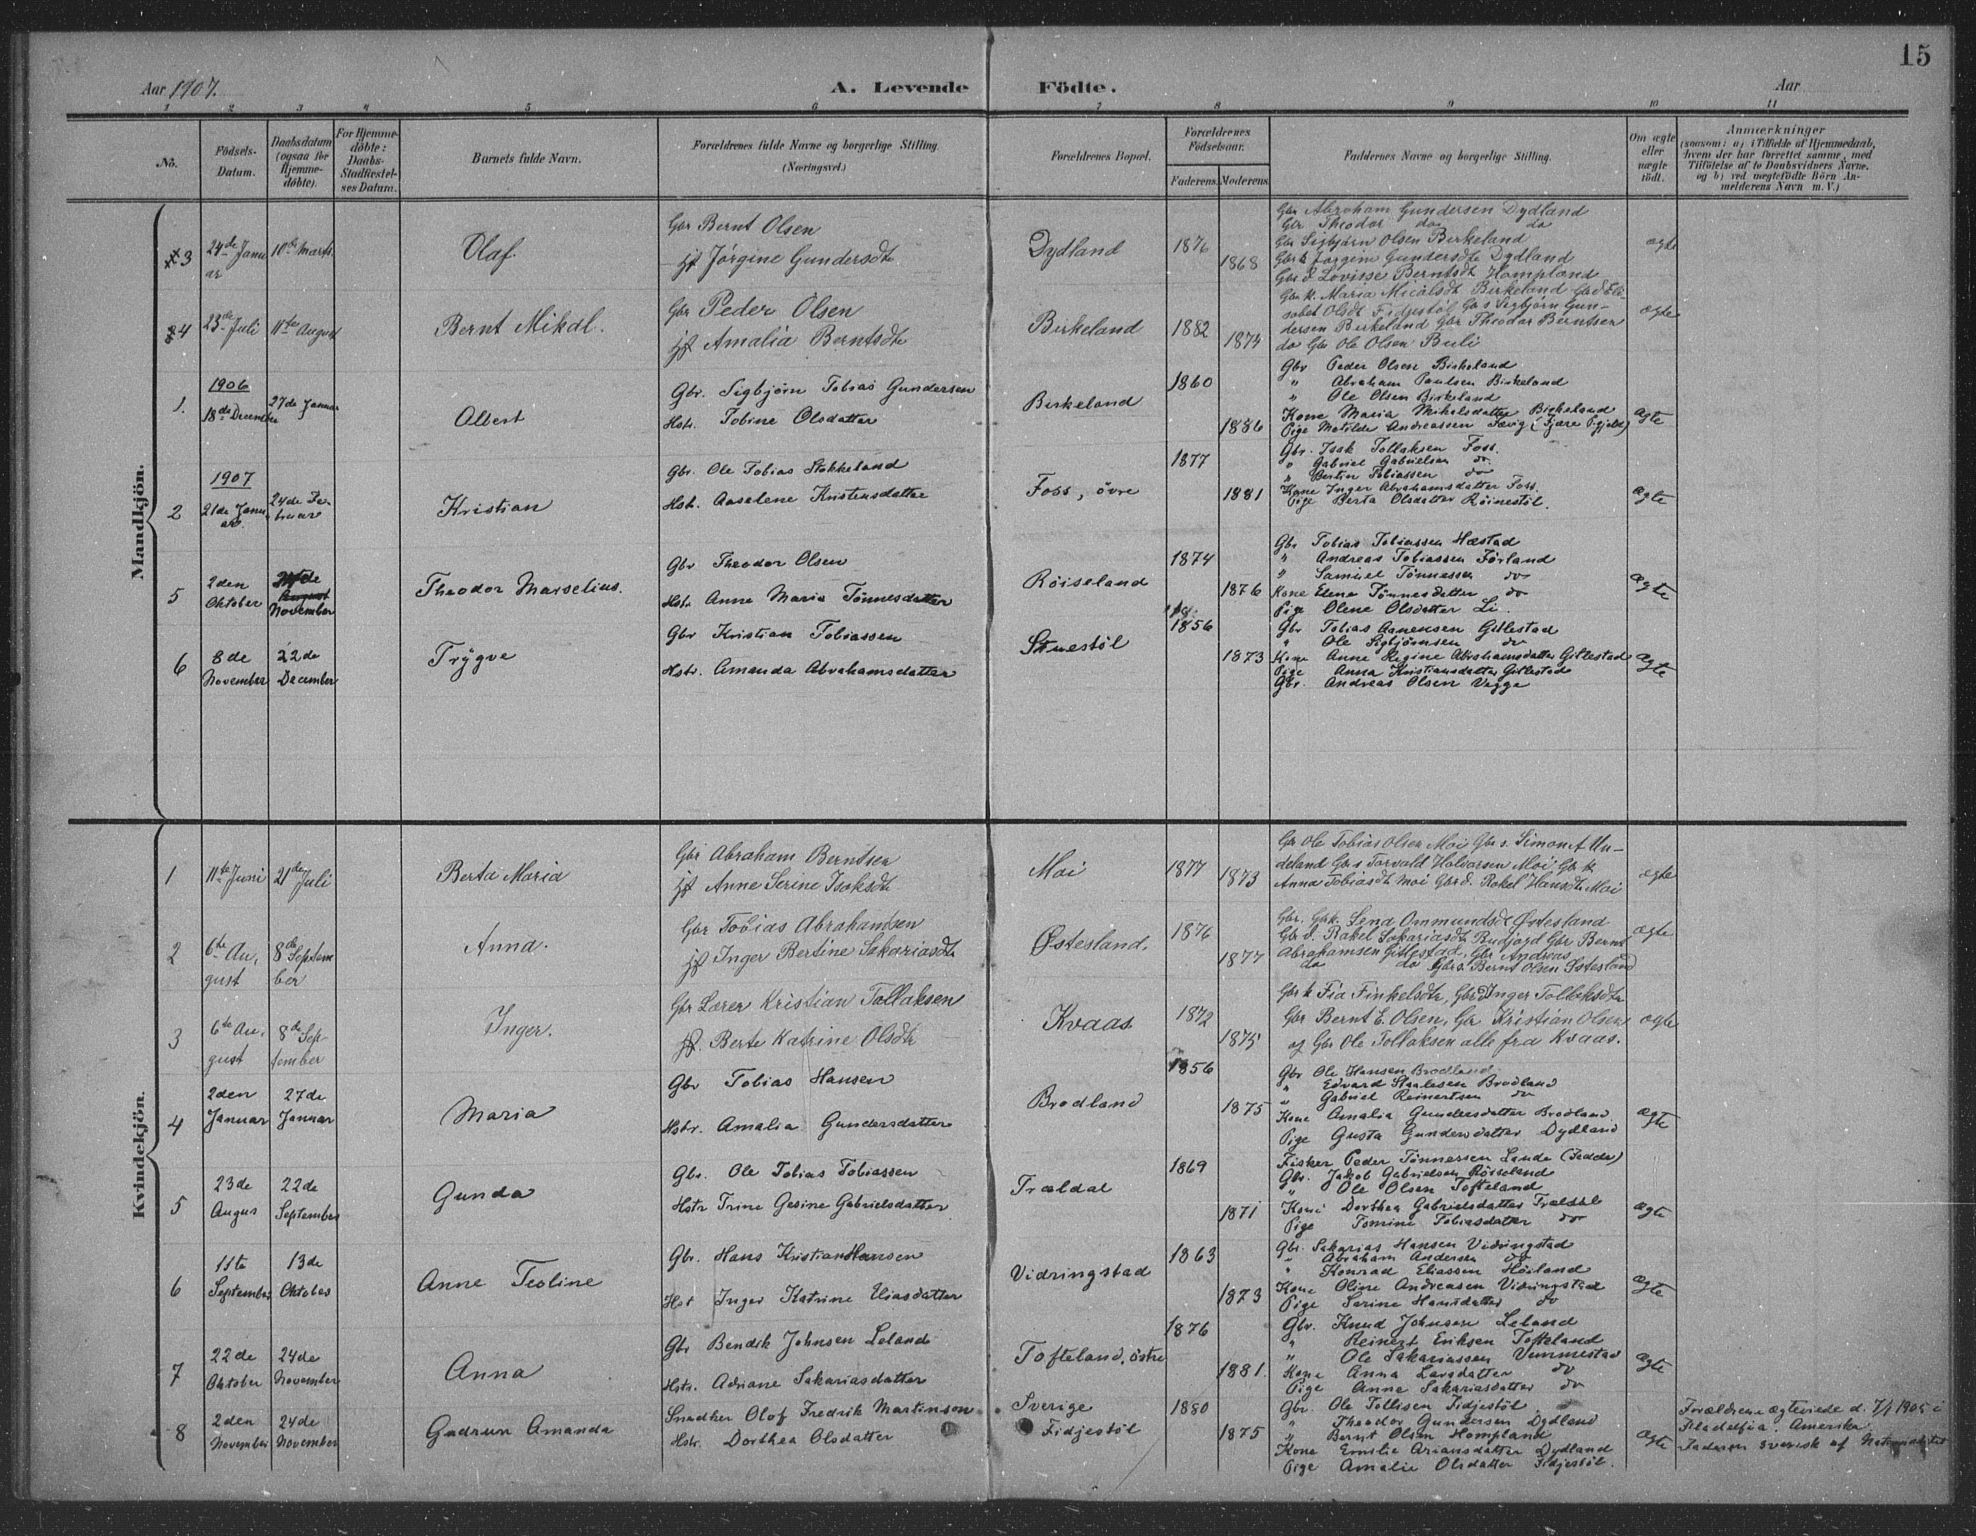 15
Aar 1907.
A. Levende Födte.
Aar
1 2 3 4 5 6 7 8 9 10 11
No.
Födsels-Datum.
Daabsdatum (ogsaa for Hjemme-döbte).
For Hjemme-döbte: Daabs-Stadfæstel-ses Datum.
Barnets fulde Navn.
Forældrenes fulde Navne og borgerlige Stilling.
(Næringsvei.)
Forældrenes Bopæl.
Forældrenes Födselsaar.
Faderens. Moderens.
Faddernes Navne og borgerlige Stilling.
Om ægte eller uægte födt.
Anmærkninger
(saasom: a) i Tilfælde af Hjemmedaab,
hvem der har forrettet samme, med
Tilföielse af to Daabsvidners Navne.
og b) ved uægtefödte Börn An-
melderens Navn m. V.)
Mandkjön.
3 24de Janu ar 10de Marts Olaf
Gbr Bernt Olsen
Jørgine Gundersdtr
Dydland 1876 1868
Gbr Abraham Gundersen Dydland
Gbr Theodor do do
Gbr Sigbjørn Olsen Birkeland
Gbr k Jørgine Gundersdtr Dydland
Gbr d Lovisse Berntsdt Hompland
ægte
4 23de Juli 11te August Bernt Mikal.
Gbr Peder Olsen
Amalia Berntsdtr
Birkeland 1882 1874
Gbr k. Maria Micalsdt Birkeland Gbr d Eli-
sabet Olsdt Fidjestøl Gbr s Sigbjørn Gun-
dersen Birkeland Gbr Theodor Berntsen
do Gbr Ole Olsen Buli
ægte
1. 1906 18de December 27de Januar Albert
Gbr. Sigbjørn Tobias Gundersen
Hstr. Tobine Olsdatter
Birkeland 1860 1886
Gbr Peder Olsen Birkeland
" Abraham Paulsen Birkeland
" Ole Olsen Birkeland
Kone Maria Mikalsdatter Birkeland
Pige Matilde Andreassen Fævig (Fjære Pgjeld)
ægte
2 1907 21de Janu ar. 24de Fe-bruar Kristian
Gbr. Ole Tobias Stokkeland
Hstr. Aaselene Kristensdatter
Foss, övre 1877 1881
Gbr. Isak Tollaksen Foss.
" Gabriel Gabrielsen do
" Bertin Tobiassen do
Kone Inger Abrahamsdatter Foss.
Pige Berta Olsdatter Röinestöl.
ægte
5 2den Oktober 24de August November Theodor Marselius.
Gbr Theodor Olsen
Hstr. Anne Maria Tönnesdatter
Röiseland 1874 1876
Gbr Tobias Tobiassen Hæstad
" Andreas Tobiassen Förland
" Samuel Tönnessen do
Kone Elene Tönnesdatter do
Pige Olene Olsdatter Li.
ægte
6 8de November 22de December Trygve
Gbr Kristian Tobiassen
Hstr. Amanda Abrahamsdatter
Stuestöl 1856 1873
Gbr Tobias Aanensen Gitlestad
" Ole Sigbjörnsen do
Kone Anne Regine Abrahamsdatter Gitlestad
Pige Anna Kristiansdatter Gitlestad
Gbr. Andreas Olsen Vegge
ægte
Kvindekjön.
1 11te Juni 21de Juli Berta Maria
Gbr Abraham Berntsen
Anne Serine Isaksdtr
Moi 1877 1873
Gbr Ole Tobias Olsen Moi Gbr s. Simon A Un-
deland Gbr s Torvald Halvorsen Moi Gbr k
Anna Tobiasdtr Moi Gbr d. Rakel Hansdtr Moi
ægte
2 6te Au, gust 8de Septem ber Anna.
Gbr Tobias Abrahamsen
Inger Bertine Sakariasdtr
Østesland. 1876 1877
Gbr. Gbrk. Lena Ommundsdt Østesland
Gbr d. Rakel Sakariasdtr Rudjord Gbr Bernt
Abrahamsen Gitlestad, Gbr Andreas
do do Gbr s Bernt Olsen Østesland
ægte
3 6te Au, gust 8de Sep-tember Inger.
Gbr Lærer Kristian Tollaksen
Berte Katrine Olsdtr
Kvaas 1872 1875
Gbr k Fia Finkelsdtr, Gbr D Inger Tollaksdtr
Gbr Bernt E. Olsen, Gbr Kristian Olsen
og Gbr Ole Tollaksen alle fra Kvaas.
ægte
4 2den Januar 27de Januar Maria
Gbr Tobias Hansen
Hstr. Amalia Gundersdatter
Brodland 1856 1875
Gbr Ole Hansen Brodland
" Edvard Staalesen Brodland
" Gabriel Reinertsen do
Kone Amalia Gundersdatter Brodland
Pige Gusta Gundersdatter Dydland
ægte
5 23de Augus 22de September Gunda
Gbr. Ole Tobias Tobiassen
Hstr Trine Gesine Gabrielsdatter
Trældal 1869 1871
Fisker Peder Tönnessen Lande (Fedde)
Gbr. Jakob Gabrielsen Röiseland
" Ole Olsen Tofteland
Kone Dorthea Gabrielsdatter Trældal
Pige Tomine Tobiasdatter do
ægte
6 11te September 13de Oktober Anne Teoline
Gbr. Hans Kristian Hansen
Hst Inger Katrine Eliasdatter
Vidringstad 1863 1873
Gbr. Sakarias Hansen Vidringstad
" Abraham Andersen do
" Konrad Eliassen Höiland
Kone Oline Andreasen Vidringstad
Pige Serine Hansdatter do
ægte
7 22de Oktober 24de November Anna
Gbr Bendik Johnsen Leland
Hstr. Adriane Sakariasdatter
Tofteland, östre 1876 1881.
Gbr. Knud Johnsen Leland
" Reinert Eriksen Tofteland
" Ole Sakariassen Vemmestad
Kone Anna Larsdatter do
Pige Anne Sakariasdatter do
ægte
8 2den November 24de November Gudrun Amanda
Snedker Olof Fredrik Martinson
Hstr. Dorthea Olsdatter
Sverige
Fidjestöl 1880 1875
Gbr. Ole Tollisen Fidjestöl
" Theodor Gundersen Dydland
" Bernt Olsen Hompland
Kone Emilie Ariansdatter Dydland
Pige Amalie Olsdatter Fidjestöl.
ægte
Forældrene ægteviede d. 7/1 1905 i
Filadelfia. Amerika
Faderen svensk af Nationalitet